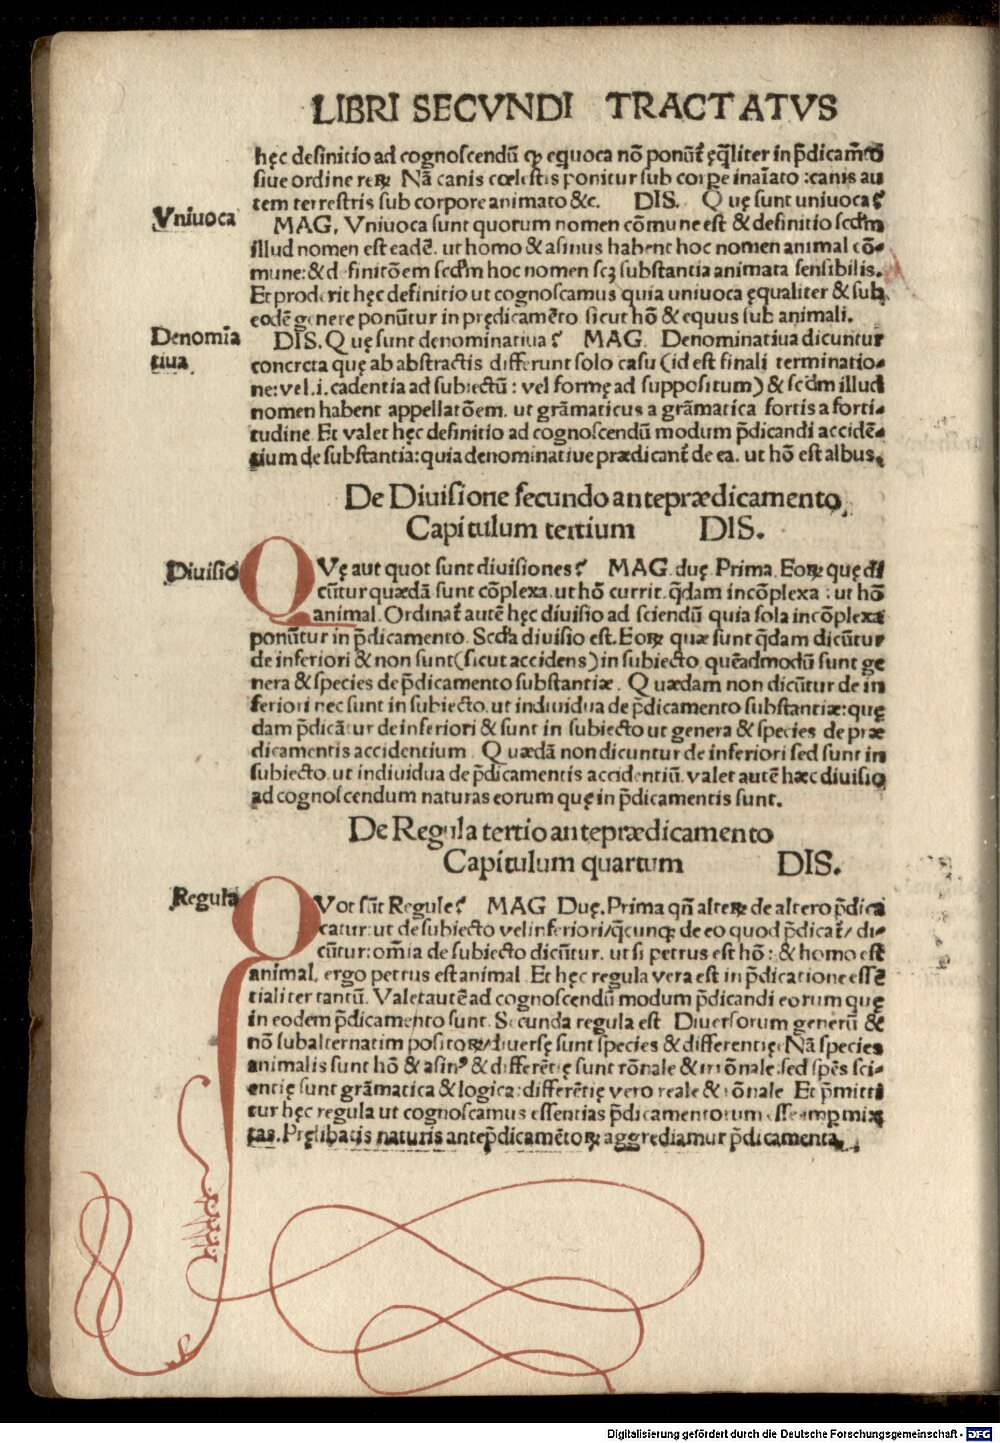 LIBRI SECVNDI TRACTATVS
hęc definitio ad cognoſcendū ꝙ equoca nō ponūt̃ ęq̃liter in p̃dicam̃to
ſiue ordine reꝝ Nā canis cœleſtis ponitur ſub corpe inaīato : canis au
tem terreſtris ſub corpore animato &c. DIS. Q uę ſunt uniuoca?
Vniuoca
MAG. Vniuoca ſunt quorum nomen cōmune eſt & definitio ſecdm̄
illud nomen eſt eadē. ut homo & aſinus habent hoc nomen animal cō⸗
mune: & d finitōem ſecdm̄ hoc nomen ſcꝫ ſubſtantia animata ſenſibilis.
Et proderit hęc definitio ut cognoſcamus quia uniuoca ęqualiter & ſub
eodē genere ponūtur in prędicamēto ſicut hō & equus ſub animali.
Denomīa
tiua
DIS. Q uę ſunt denominatiua? MAG. Denominatiua dicuntur
concreta quę ab abſtractis differunt ſolo caſu (id eſt finali terminatio⸗
ne: vel .i. cadentia ad ſubiectū : vel formę ad ſuppoſitum) & ſecdm̄ illud
nomen habent appellatōem. ut grāmaticus a grāmatica fortis a forti⸗
tudine Et valet hęc definitio ad cognoſcendū modum p̃dicandi accidē⸗
tium de ſubſtantia: quia denominatiue prædicant̃ de ea. ut hō eſt albus.
De Diuiſione ſecundo anteprædicamento.
Capitulum tertium DIS.
Diuiſio
QVę aut quot ſunt diuiſiones? MAG. duę. Prima. Eoꝝ quę di
cūtur quædā ſunt cōplexa. ut hō currit. q̃dam incōplexa : ut hō
animal. Ordinat̃ autē hęc diuiſio ad ſciendū quia ſola incōplexa
ponūtur in p̃dicamento. Secda diuiſio eſt. Eoꝝ quæ ſunt q̃dam dicūtur
de inferiori & non ſunt (ſicut accidens) in ſubiecto. quēadmodū ſunt ge
nera & ſpecies de p̃dicamento ſubſtantiæ. Q uædam non dicūtur de in
feriori nec ſunt in ſubiecto. ut indiuidua de p̃dicamento ſubſtantiæ: quę
dam p̃dicātur de inferiori & ſunt in ſubiecto ut genera & ſpecies de præ
dicamentis accidentium. Q uædā non dicuntur de inferiori ſed ſunt in
ſubiecto. ut indiuidua de p̃dicamentis accidentiū. valet autē hæc diuiſio
ad cognoſcendum naturas eorum quę in p̃dicamentis ſunt.
De Regula tertio anteprædicamento
Capitulum quartum DIS.
Regula
QVot ſūt Regule? MAG Duę. Prima qñ alteꝝ de altero p̃dica
catur: ut de ſubiecto vel inferiori/ q̃cunqꝫ de eo quod p̃dicat̃/ di⸗
cūtur: om̄ia de ſubiecto dicūtur. ut ſi petrus eſt hō: & homo eſt
animal. ergo petrus eſt animal. Et hęc regula vera eſt in p̃dicatione eſſē
tialiter tantū. Valet autē ad cognoſcendū modum p̃dicandi eorum quę
in eodem p̃dicamento ſunt. Secunda regula eſt Diuerſorum generū &
nō ſubalternatim poſitoꝝ/ diuerſę ſunt ſpecies & differentię. Nā ſpecies
animalis ſunt hō & aſinꝰ & differētię ſunt rōnale & irrōnale: ſed ſpēs ſci⸗
entię ſunt grāmatica & logica: differētię vero reale & rōnale Et p̃mitti
tur hęc regula ut cognoſcamus eſſentias p̃dicamentorum eſſe imꝑmix
tas. Pręlibatis naturis antep̃dicamētoꝝ aggrediamur p̃dicamenta.
Digitalisierung gefördert durch die Deutsche Forschungsgemeinschaft - DFG